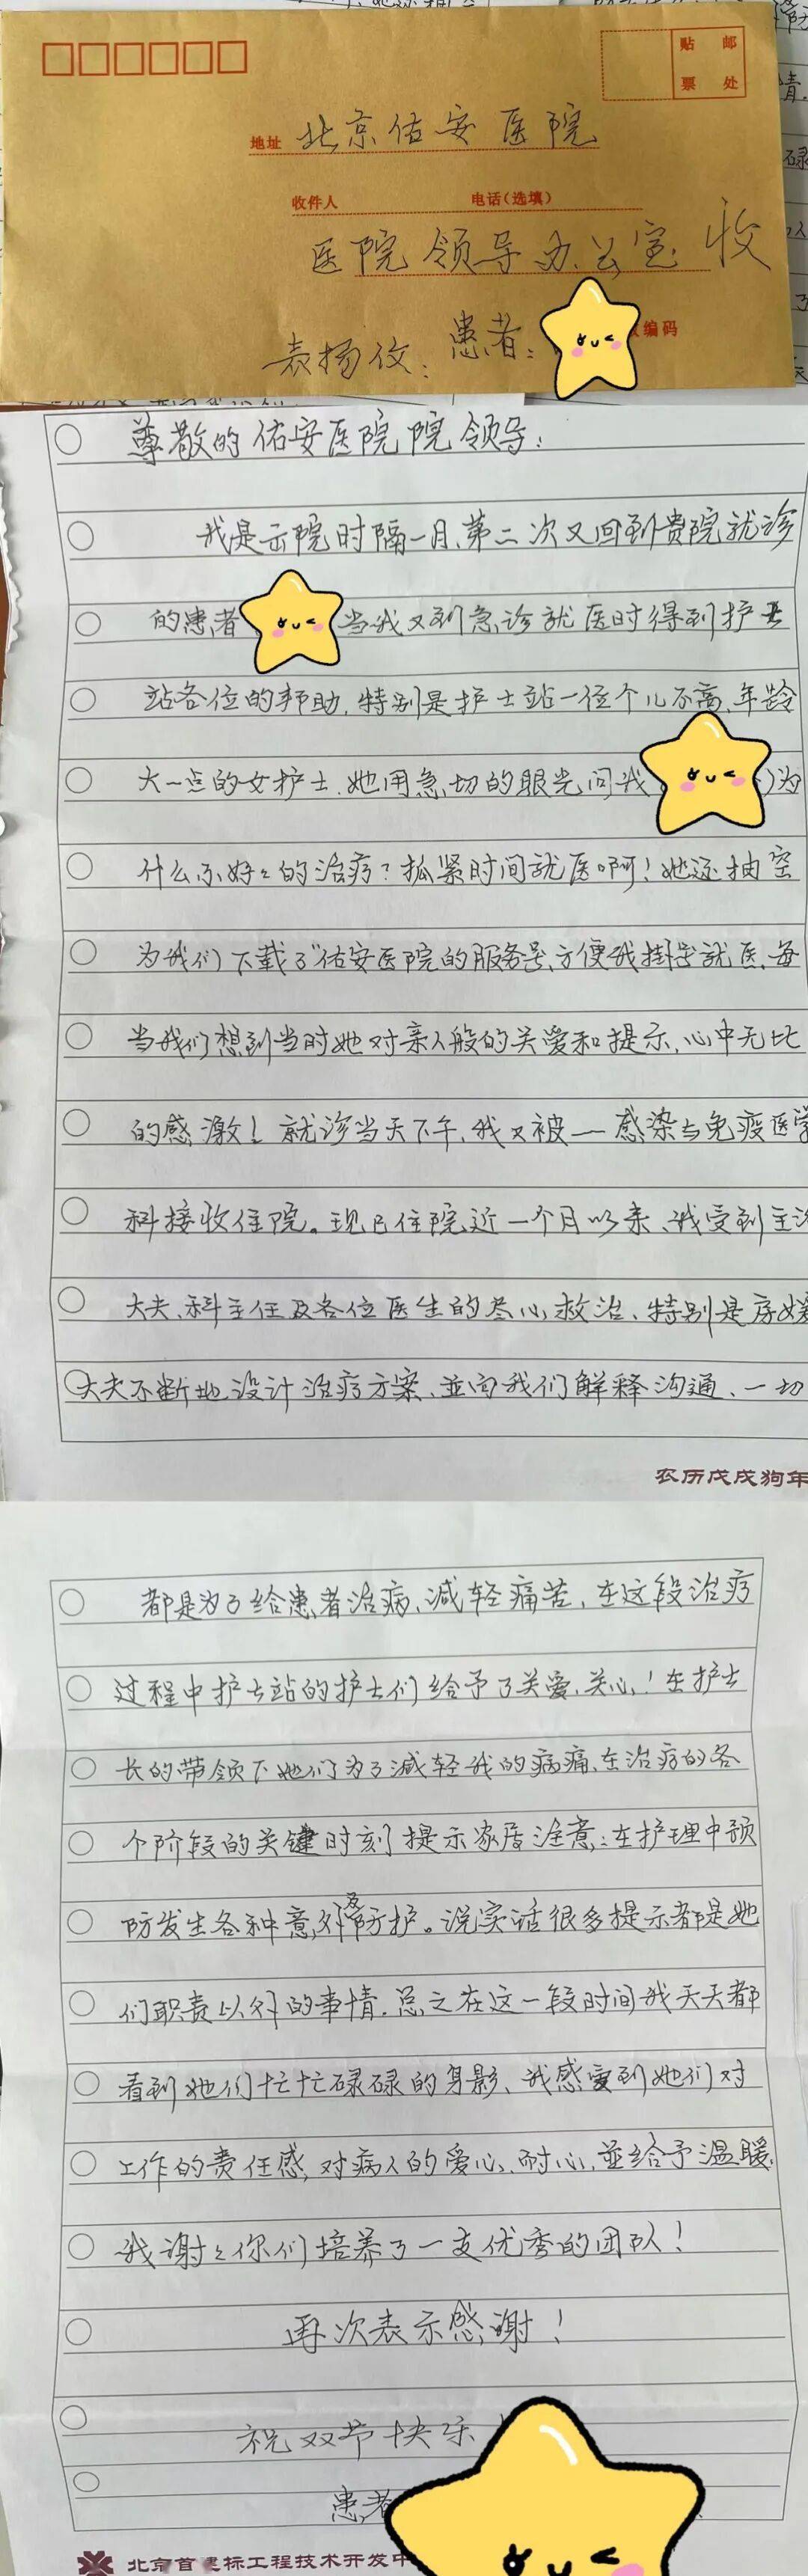 贴 邮
票 处
地址 北京佑安医院
收件人 电话(选填)
医院领导办公室 收
编码
表扬信: 患者:
尊敬的佑安医院院领导:
我是出院时隔一月、第二次又回到贵院就诊
的患者 当我又到急诊就医时得到护士
站各位的帮助,特别是护士站一位个儿不高,年龄
大一点的女护士,她用急切的眼光问我 )为
什么不好々的治疗?抓紧时间就医啊!她还抽空
为我们下载了“佑安医院的服务号,方便我挂号就医,每
当我们想到当时她对亲人般的关爱和提示,心中无比
的感激!就诊当天下午,我又被一感染与免疫医学
科接收住院。现已住院近一个月以来、我受到主治
大夫、科主任及各位医生的尽心救治、特别是房
大夫不断地设计治疗方案、並向我们解释沟通、一切
农历戊戌狗年
都是为了给患者治病、减轻痛苦,在这段治疗
过程中护士站的护士们给予了关爱、关心!在护士
长的带领下她们为了减轻我的病痛、在治疗的各
个阶段的关键时刻提示家居注意;在护理中预
防发生各种意外及防护。说实话很多提示都是她
们职责以外的事情,总之在这一段时间我天天都
看到她们忙忙碌碌的身影、我感受到她们对
工作的责任感,对病人的爱心、耐心,並给予温暖,
我谢々你们培养了一支优秀的团队!
再次表示感谢!
祝双节快乐
患者
北京首建标工程技术开发中